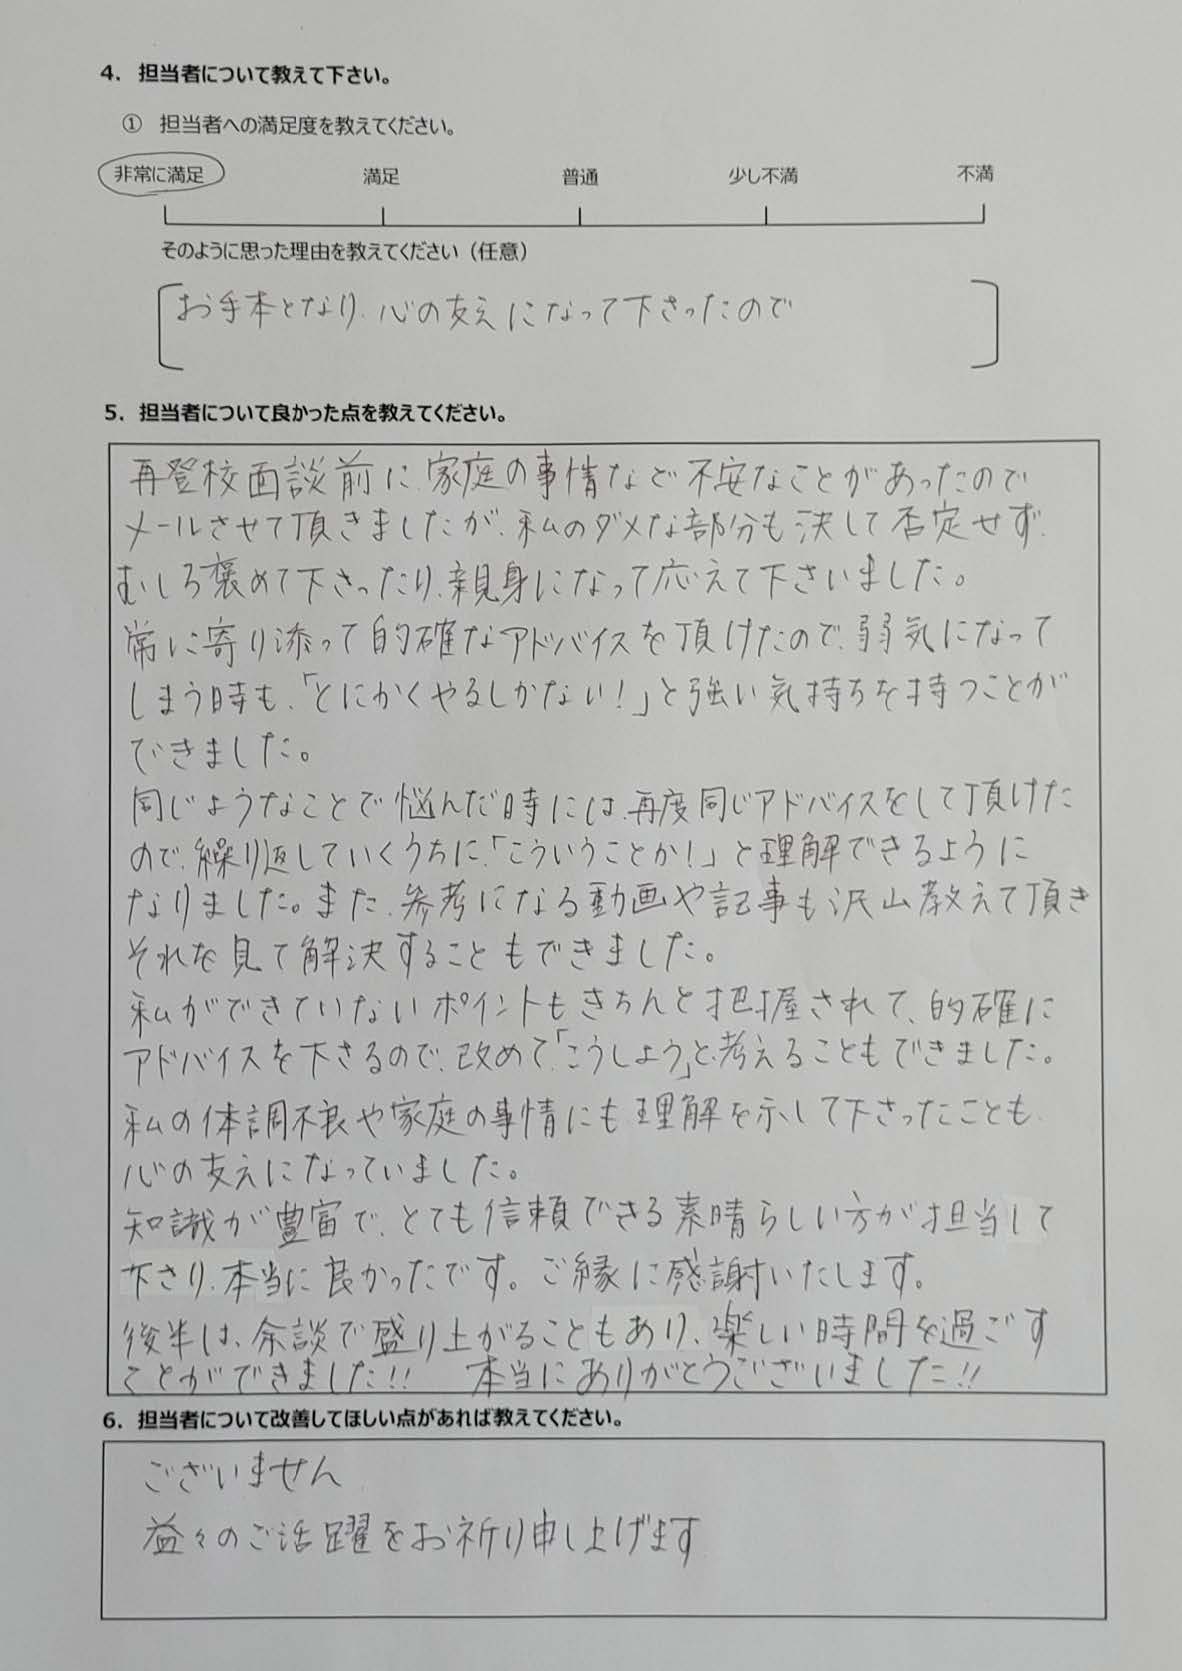 4. 担当者について教えて下さい。
① 担当者への満足度を教えてください。
非常に満足 満足 普通 少し不満 不満
そのように思った理由を教えてください（任意）
お手本となり、心の支えになって下さったので
5. 担当者について良かった点を教えてください。
再登校面談前に、家庭の事情など不安なことがあったので
メールさせて頂きましたが、私のダメな部分も決して否定せず、
むしろ褒めて下さったり、親身になって応えて下さいました。
常に寄り添って的確なアドバイスを頂けたので、弱気になって
しまう時も、「とにかくやるしかない！」と強い気持ちを持つことが
できました。
同じようなことで悩んだ時には、再度同じアドバイスをして頂けた
ので、繰り返していくうちに、「こういうことか！」と理解できるように
なりました。また、参考になる動画や記事も沢山教えて頂き
それを見て解決することもできました。
私ができていないポイントもきちんと把握されて、的確に
アドバイスを下さるので、改めて「こうしよう」と考えることもできました。
私の体調不良や家庭の事情にも理解を示して下さったことも、
心の支えになっていました。
知識が豊富で、とても信頼できる素晴らしい方が担当して
下さり、本当に良かったです。ご縁に感謝いたします。
後半は、余談で盛り上がることもあり、楽しい時間を過ごす
ことができました!! 本当にありがとうございました!!
6. 担当者について改善してほしい点があれば教えてください。
ございません
益々のご活躍をお祈り申し上げます